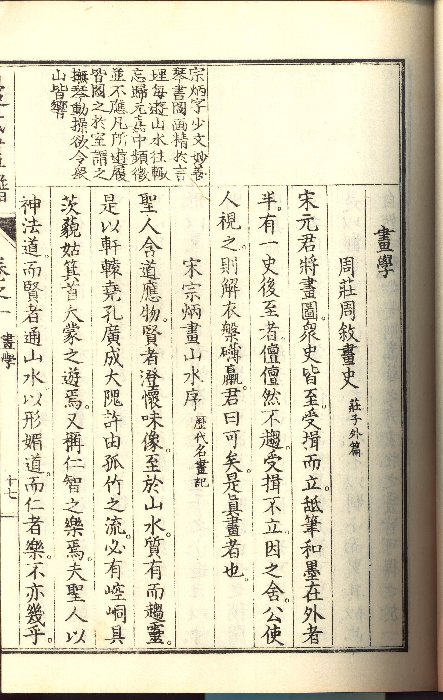 宗炳字少文妙善
琴書圖画精於言
理每遊山水往輒
忘歸元嘉中頻徵
並不應凡所遊履
皆圖之於室謂之
撫琴動操欲令衆
山皆響
畫學
周莊周敘畫史 莊子外篇
宋元君將畫圖。衆史皆至。受揖而立。舐筆和墨在外者
半。有一史後至者。儃儃然不趨。受揖不立。因之舍。公使
人視之。則解衣槃礴臝。君曰可矣。是眞畫者也。
宋宗炳畫山水序 歷代名畫記
聖人含道應物。賢者澄懷味像。至於山水。質有而趣靈。
是以軒轅堯孔廣成大隗許由孤竹之流。必有崆峒具
茨藐姑箕首大蒙之遊焉。又稱仁智之樂焉。夫聖人以
神法道。而賢者通。山水以形媚道。而仁者樂。不亦幾乎。
卷之一
畫學
十七